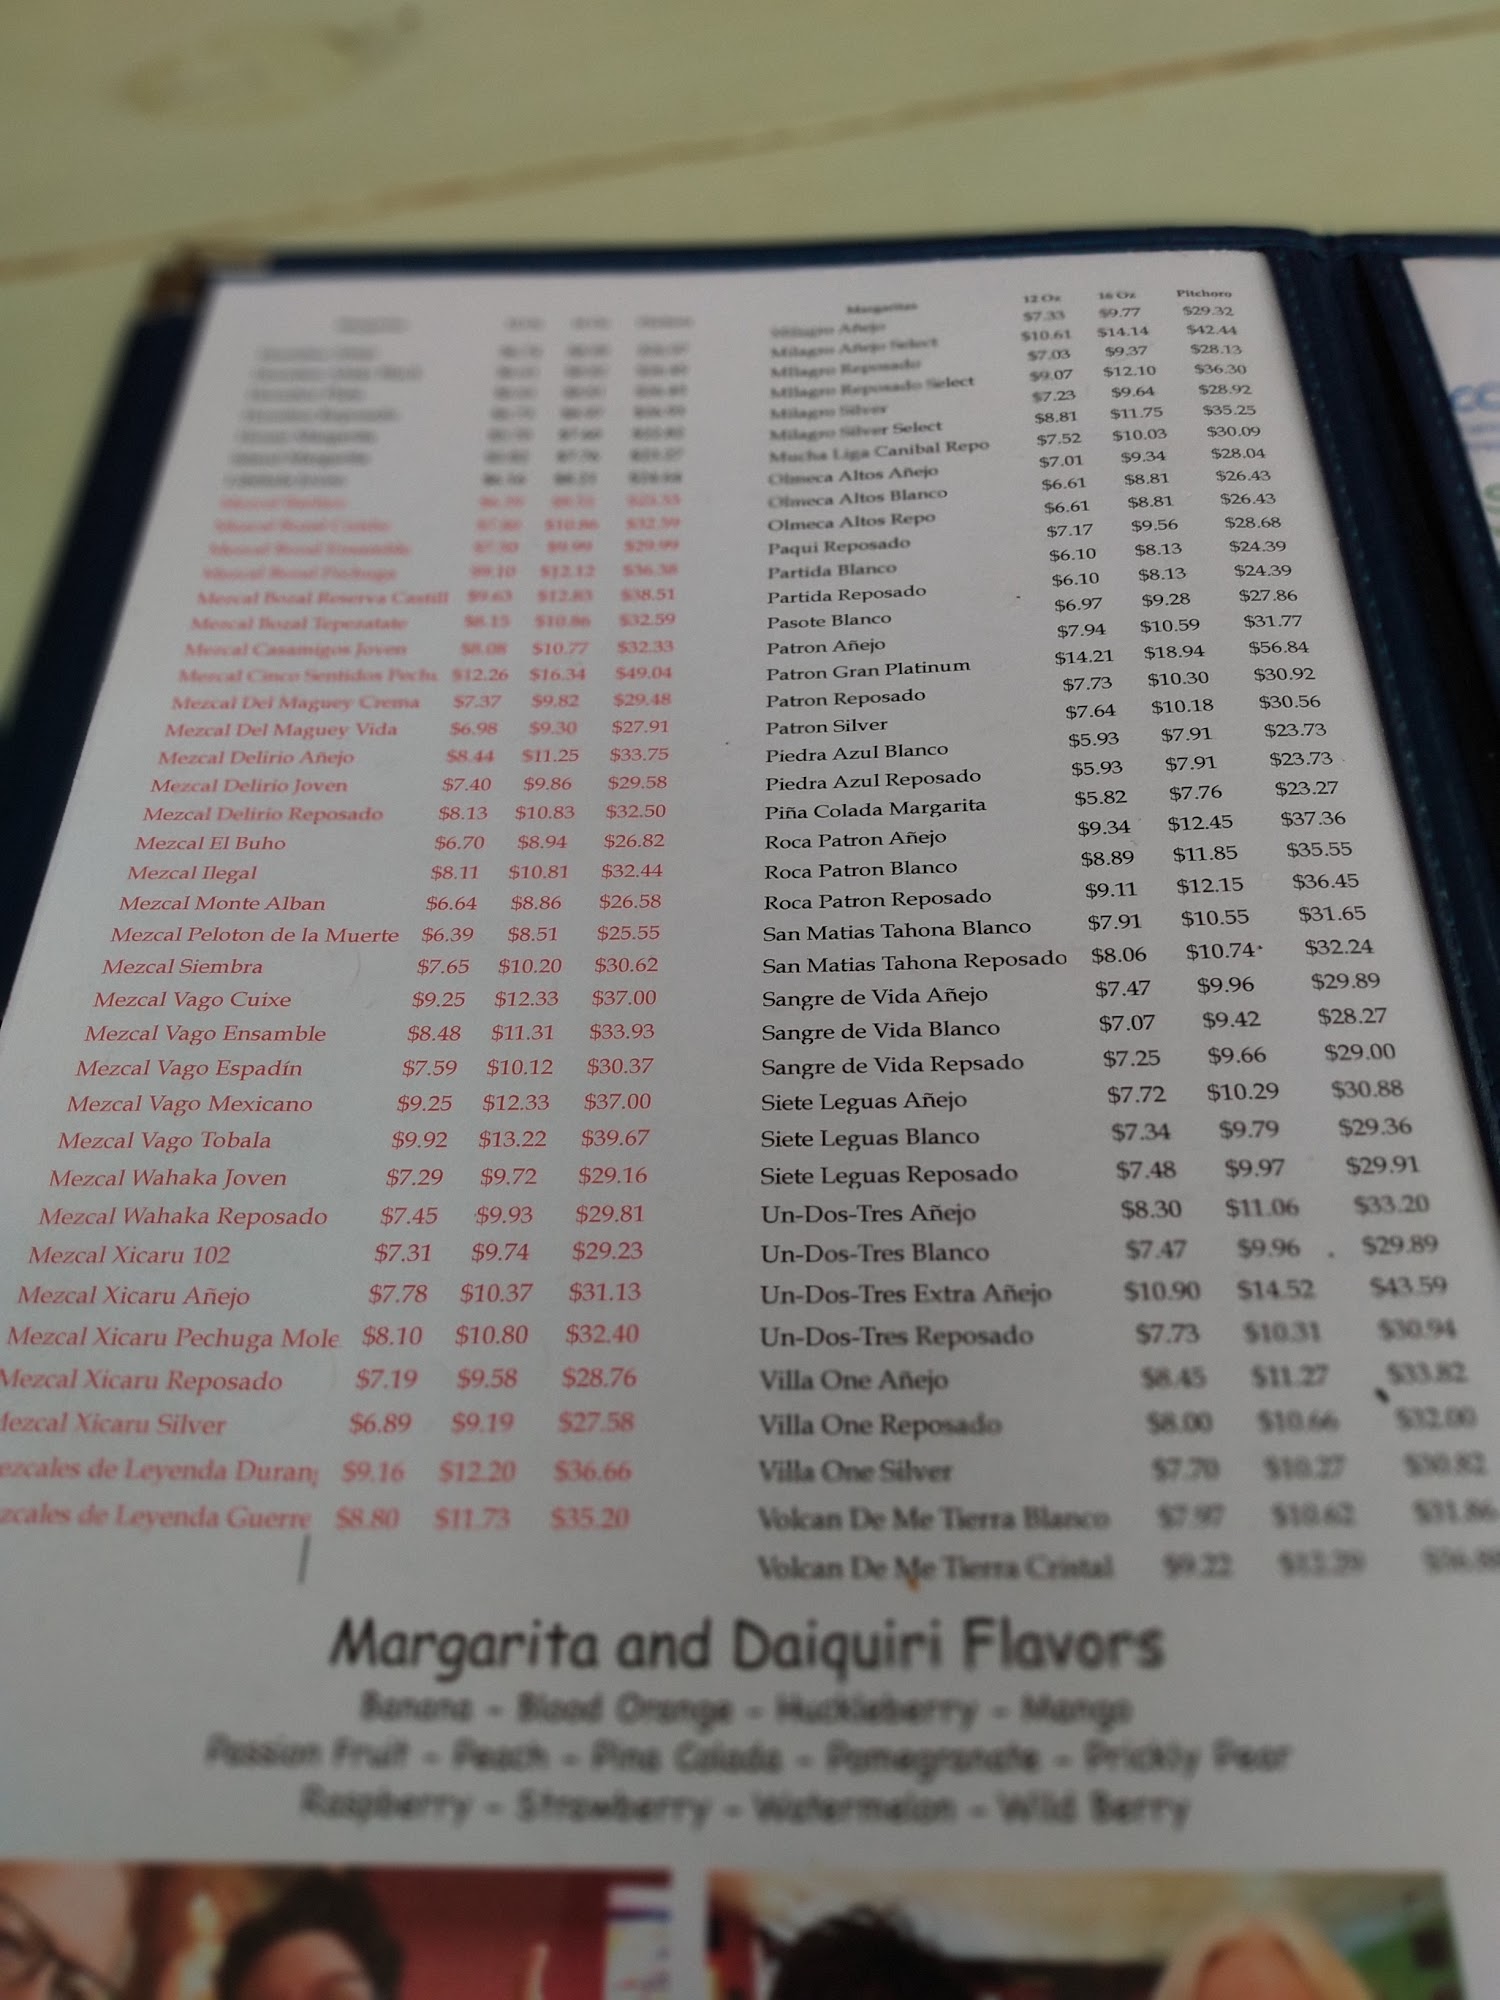 Mezcal Bozal Reserva Castill $9.63 $12.83 $38.51
Mezcal Bozal Tepeztate $8.15 $10.86 $32.59
Mezcal Casamigos Joven $8.08 $10.77 $32.33
Mezcal Cinco Sentidos Pechu $12.26 $16.34 $49.04
Mezcal Del Maguey Crema $7.37 $9.82 $29.48
Mezcal Del Maguey Vida $6.98 $9.30 $27.91
Mezcal Delirio Añejo $8.44 $11.25 $33.75
Mezcal Delirio Joven $7.40 $9.86 $29.58
Mezcal Delirio Reposado $8.13 $10.83 $32.50
Mezcal El Buho $6.70 $8.94 $26.82
Mezcal Ilegal $8.11 $10.81 $32.44
Mezcal Monte Alban $6.64 $8.86 $26.58
Mezcal Peloton de la Muerte $6.39 $8.51 $25.55
Mezcal Siembra $7.65 $10.20 $30.62
Mezcal Vago Cuixe $9.25 $12.33 $37.00
Mezcal Vago Ensamble $8.48 $11.31 $33.93
Mezcal Vago Espadín $7.59 $10.12 $30.37
Mezcal Vago Mexicano $9.25 $12.33 $37.00
Mezcal Vago Tobala $9.92 $13.22 $39.67
Mezcal Wahaka Joven $7.29 $9.72 $29.16
Mezcal Wahaka Reposado $7.45 $9.93 $29.81
Mezcal Xicaru 102 $7.31 $9.74 $29.23
Mezcal Xicaru Añejo $7.78 $10.37 $31.13
Mezcal Xicaru Pechuga Mole $8.10 $10.80 $32.40
Mezcal Xicaru Reposado $7.19 $9.58 $28.76
Mezcal Xicaru Silver $6.89 $9.19 $27.58
ezcales de Leyenda Durang $9.16 $12.20 $36.66
zcales de Leyenda Guerre $8.80 $11.73 $35.20
Margaritas 12 Oz 16 Oz Pitchoro
Milagro Añejo $7.33 $9.77 $29.32
Milagro Añejo Select $10.61 $14.14 $42.44
Milagro Reposado $7.03 $9.37 $28.13
Milagro Reposado Select $9.07 $12.10 $36.30
Milagro Silver $7.23 $9.64 $28.92
Milagro Silver Select $8.81 $11.75 $35.25
Mucha Liga Canibal Repo $7.52 $10.03 $30.09
Olmeca Altos Añejo $7.01 $9.34 $28.04
Olmeca Altos Blanco $6.61 $8.81 $26.43
Olmeca Altos Repo $6.61 $8.81 $26.43
Paqui Reposado $7.17 $9.56 $28.68
Partida Blanco $6.10 $8.13 $24.39
Partida Reposado $6.10 $8.13 $24.39
Pasote Blanco $6.97 $9.28 $27.86
Patron Añejo $7.94 $10.59 $31.77
Patron Gran Platinum $14.21 $18.94 $56.84
Patron Reposado $7.73 $10.30 $30.92
Patron Silver $7.64 $10.18 $30.56
Piedra Azul Blanco $5.93 $7.91 $23.73
Piedra Azul Reposado $5.93 $7.91 $23.73
Piña Colada Margarita $5.82 $7.76 $23.27
Roca Patron Añejo $9.34 $12.45 $37.36
Roca Patron Blanco $8.89 $11.85 $35.55
Roca Patron Reposado $9.11 $12.15 $36.45
San Matias Tahona Blanco $7.91 $10.55 $31.65
San Matias Tahona Reposado $8.06 $10.74 $32.24
Sangre de Vida Añejo $7.47 $9.96 $29.89
Sangre de Vida Blanco $7.07 $9.42 $28.27
Sangre de Vida Repsado $7.25 $9.66 $29.00
Siete Leguas Añejo $7.72 $10.29 $30.88
Siete Leguas Blanco $7.34 $9.79 $29.36
Siete Leguas Reposado $7.48 $9.97 $29.91
Un-Dos-Tres Añejo $8.30 $11.06 $33.20
Un-Dos-Tres Blanco $7.47 $9.96 $29.89
Un-Dos-Tres Extra Añejo $10.90 $14.52 $43.59
Un-Dos-Tres Reposado $7.73 $10.31 $30.94
Villa One Añejo $8.45 $11.27 $33.82
Villa One Reposado $8.00 $10.66 $32.00
Villa One Silver $7.70 $10.27 $30.82
Volcan De Me Tierra Blanco $7.97 $10.62 $31.86
Volcan De Me Tierra Cristal $9.22
Margarita and Daiquiri Flavors
Banana - Blood Orange - Huckleberry - Mango
Passion Fruit - Peach - Pina Colada - Pomegranate - Prickly Pear
Raspberry - Strawberry - Watermelon - Wild Berry